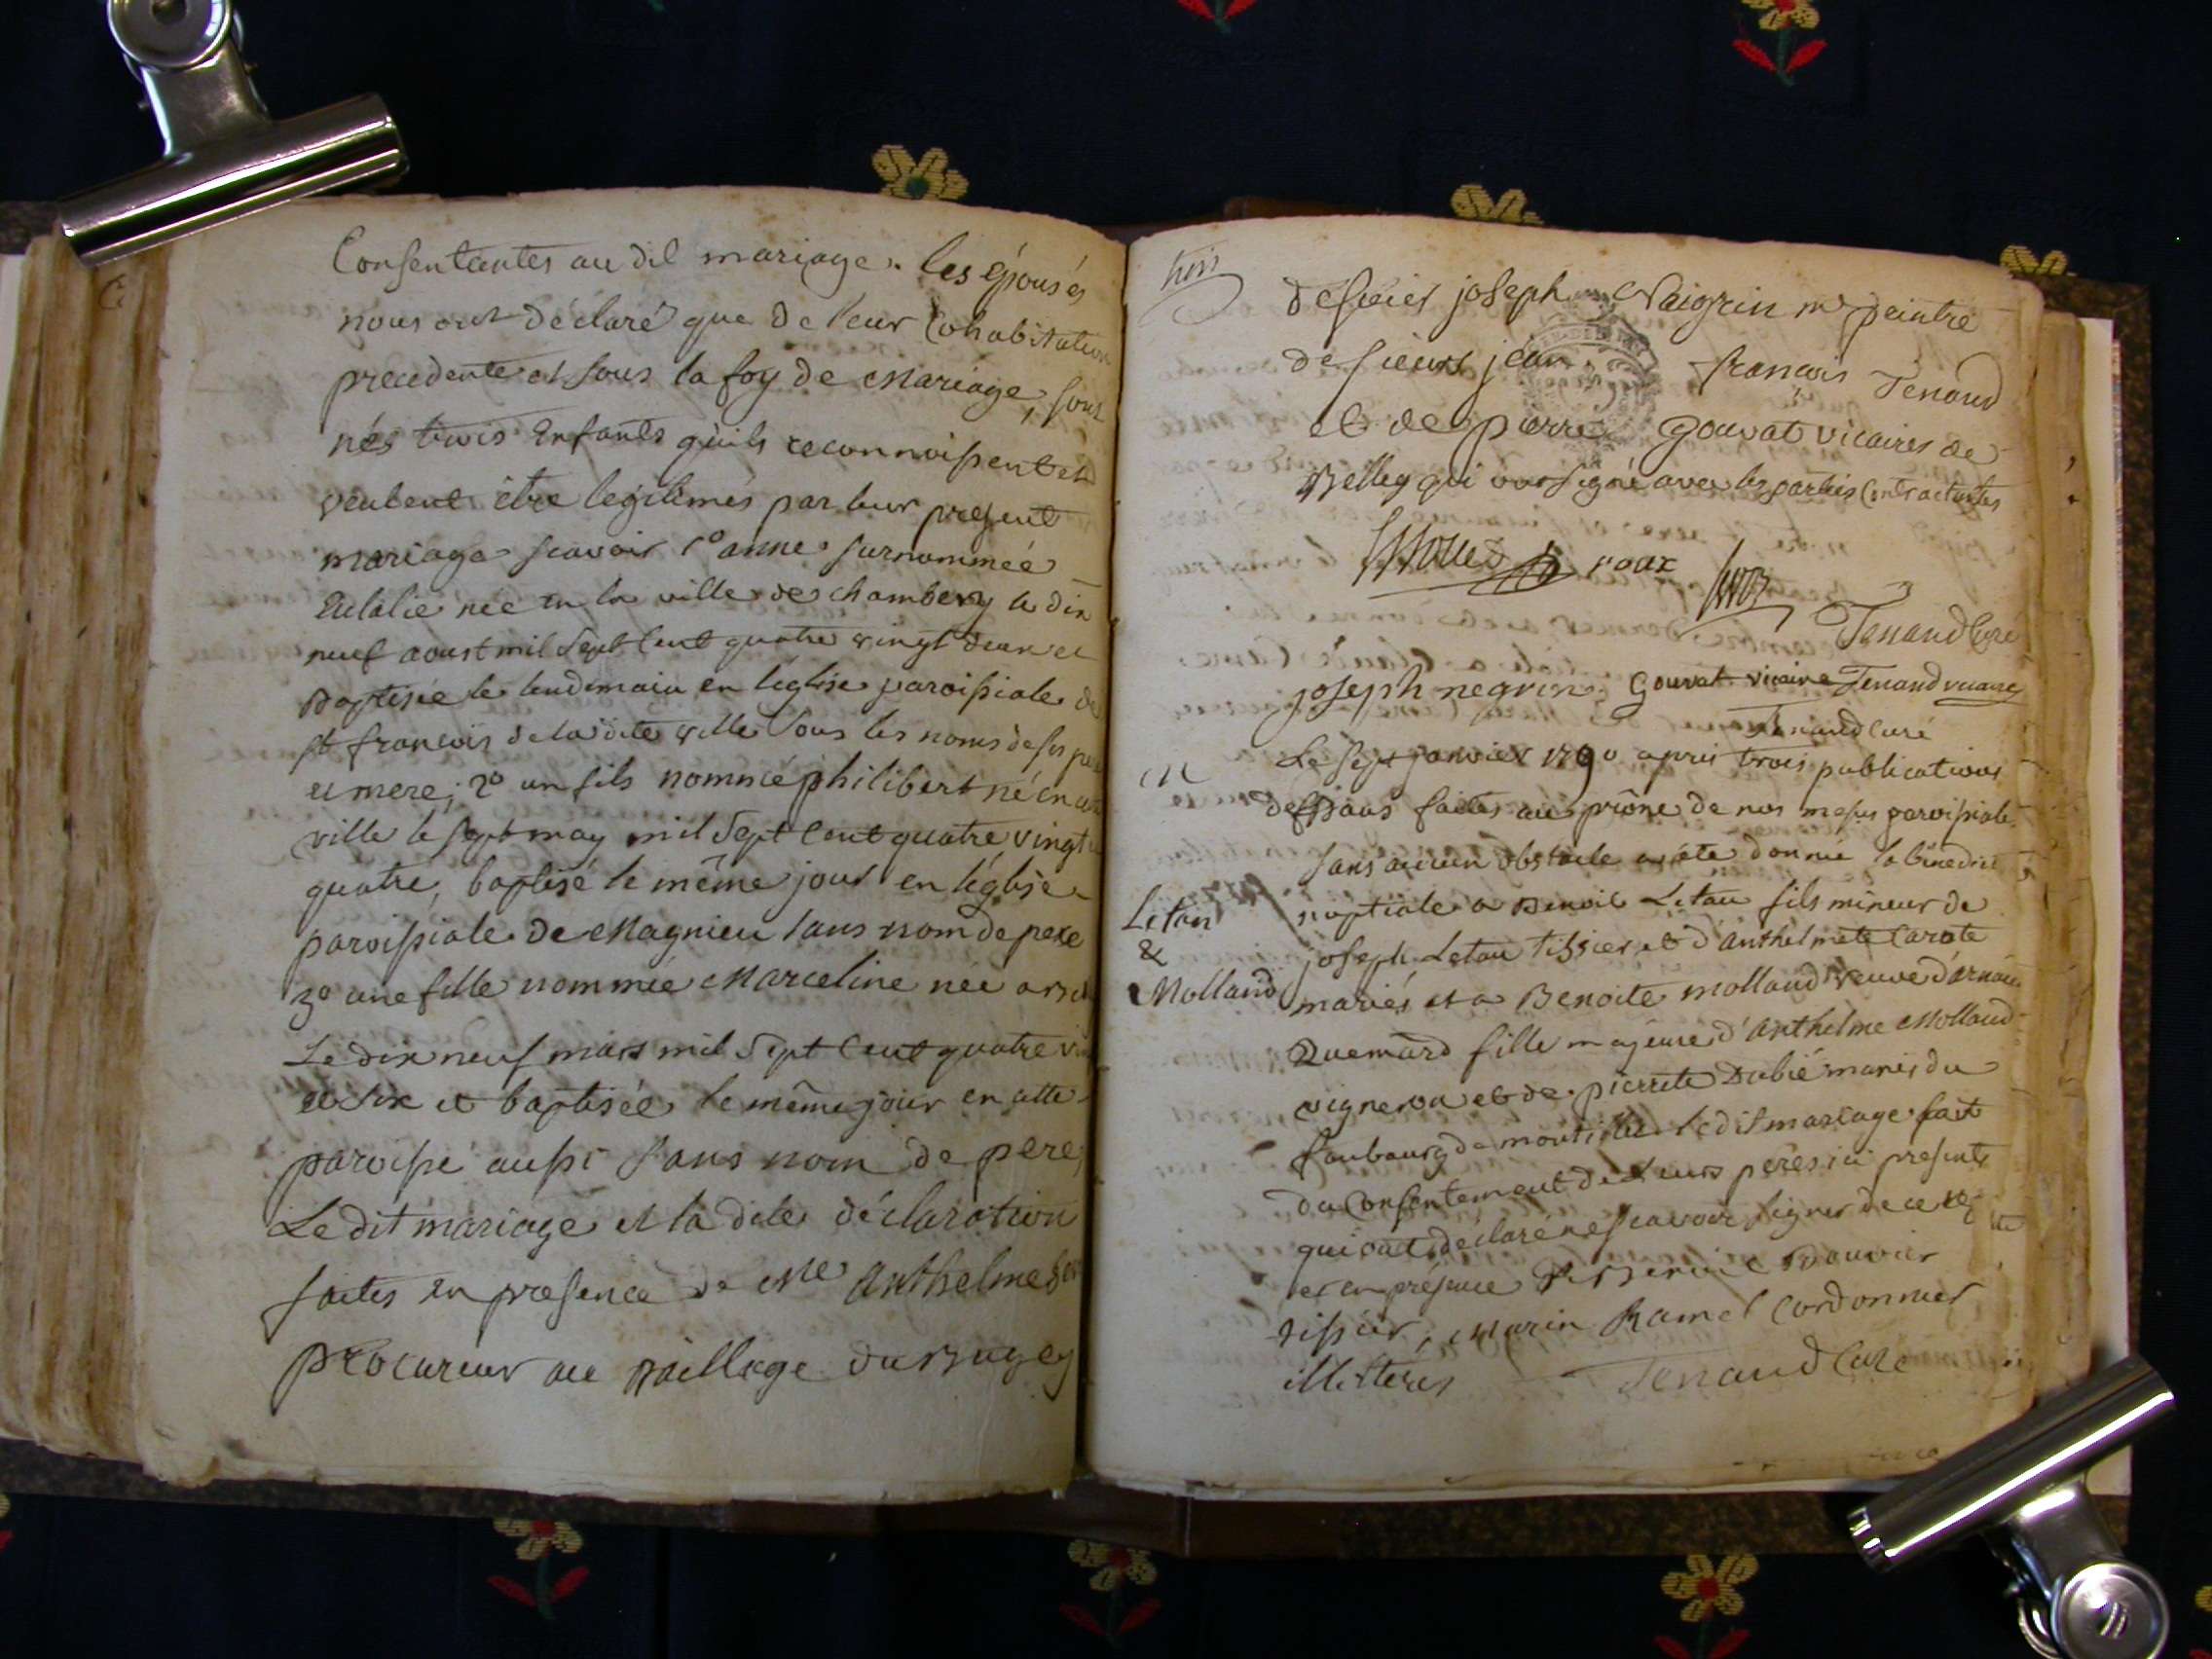 Consentantes au dit mariage. les épousés
nous ont déclaré que de leur Cohabitation
precedente et sous la foy de Mariage, sont
nés trois Enfants qu'ils reconnoissent et
veulent être légitimés par leur present
mariage scavoir 1o anne surnommée
Eulalie née en la ville de chambery le dix
neuf aoust mil Sept Cent quatre vingt deux et
Baptisée le lendemain en l'église paroissiale de
st françois de la dite ville sous les noms de ses
et mere; 2o un fils nommé philibert né en
ville le sept may mil Sept Cent quatre vingt
quatre, baptisé le même jour en l'église
paroissiale de Magnieu sans nom de pere
3o une fille nommée Marceline née a
Le dix neuf mars mil Sept Cent quatre
et six et baptisée le même jour en cette
paroisse aussi sans nom de pere,
Le dit mariage et la dite déclaration
faites en presence de Me Anthelme
procureur au Baillage du Bugey
de sieur joseph Naigrin me peintre
de sieurs jean françois Tenand
et de pierre Gouvat vicaires de
Belley qui ont signé avec les parties Contractantes
roux
Tenand Curé
joseph negrin Gouvat vicaire Tenand vicaire
Tenand Curé
Le sept janvier 1790 après trois publications
de bans faites au prône de nos messes paroissiale
sans aucun obstacle a été donnée la bénédict
nuptiale a Benoit Letan fils mineur de
Letan
&
Molland
joseph Letan tissier et d'anthelmete Carote
mariés et a Benoite Molland veuve d'
Quemard fille majeure d'anthelme Molland
vigneron et de pierrete Dubié mariés du
faubourg de le dit mariage fait
du Consentement de Leurs pères ici presents
qui ont déclaré ne scavoir signer de ce
et en présence de Benoit Bouvier
tissier, Marin Ramel Cordonnier
illiterés Tenand Curé